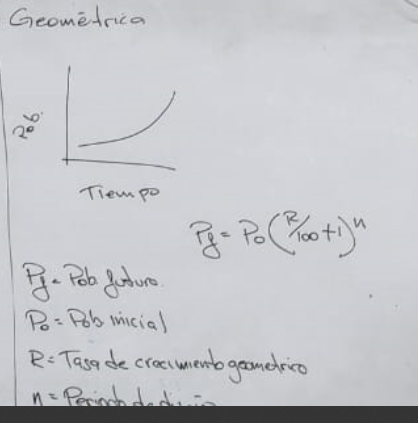 Geométrica
Pob.
Tiempo
Pf = Po (R/100+1)^n
Pf = Pob. futura.
Po = Pob inicial
R = Tasa de crecimiento geometrico
n = Periodo de diseño